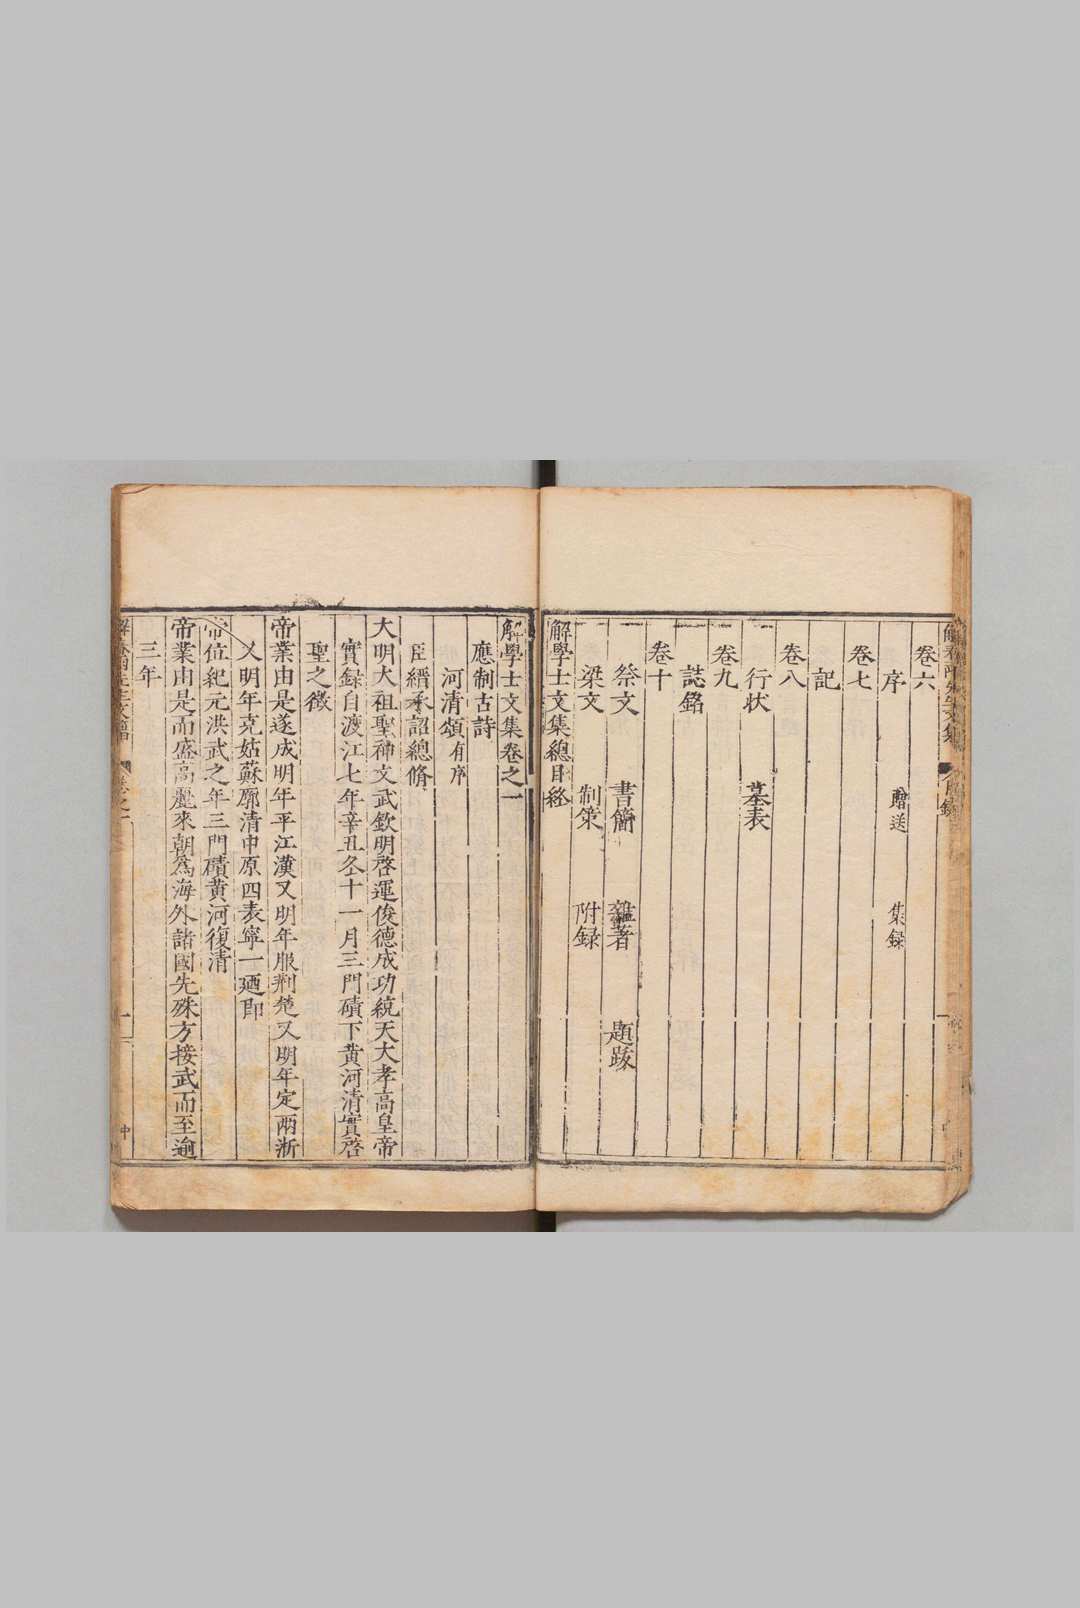 卷六
序 贈送 集録
卷七
記
卷八
行状 墓表
卷九
誌銘
卷十
祭文 書簡 雜著 題跋
梁文 制策 附録
解學士文集總目終
解學士文集卷之一
應制古詩
河清頌有序
臣縉承詔總脩
大明太祖聖神文武欽明啓運俊德成功統天大孝高皇帝
實録自渡江七年辛丑冬十一月三門磧下黄河清實啓
聖之徴
帝業由是遂成明年平江漢又明年服荆楚又明年定兩淅
又明年克姑蘇廓清中原四表寧一廼即
帝位紀元洪武之年三門磧黄河復清
帝業由是而盛高麗來朝為海外諸國先殊方接武而至逾
三年